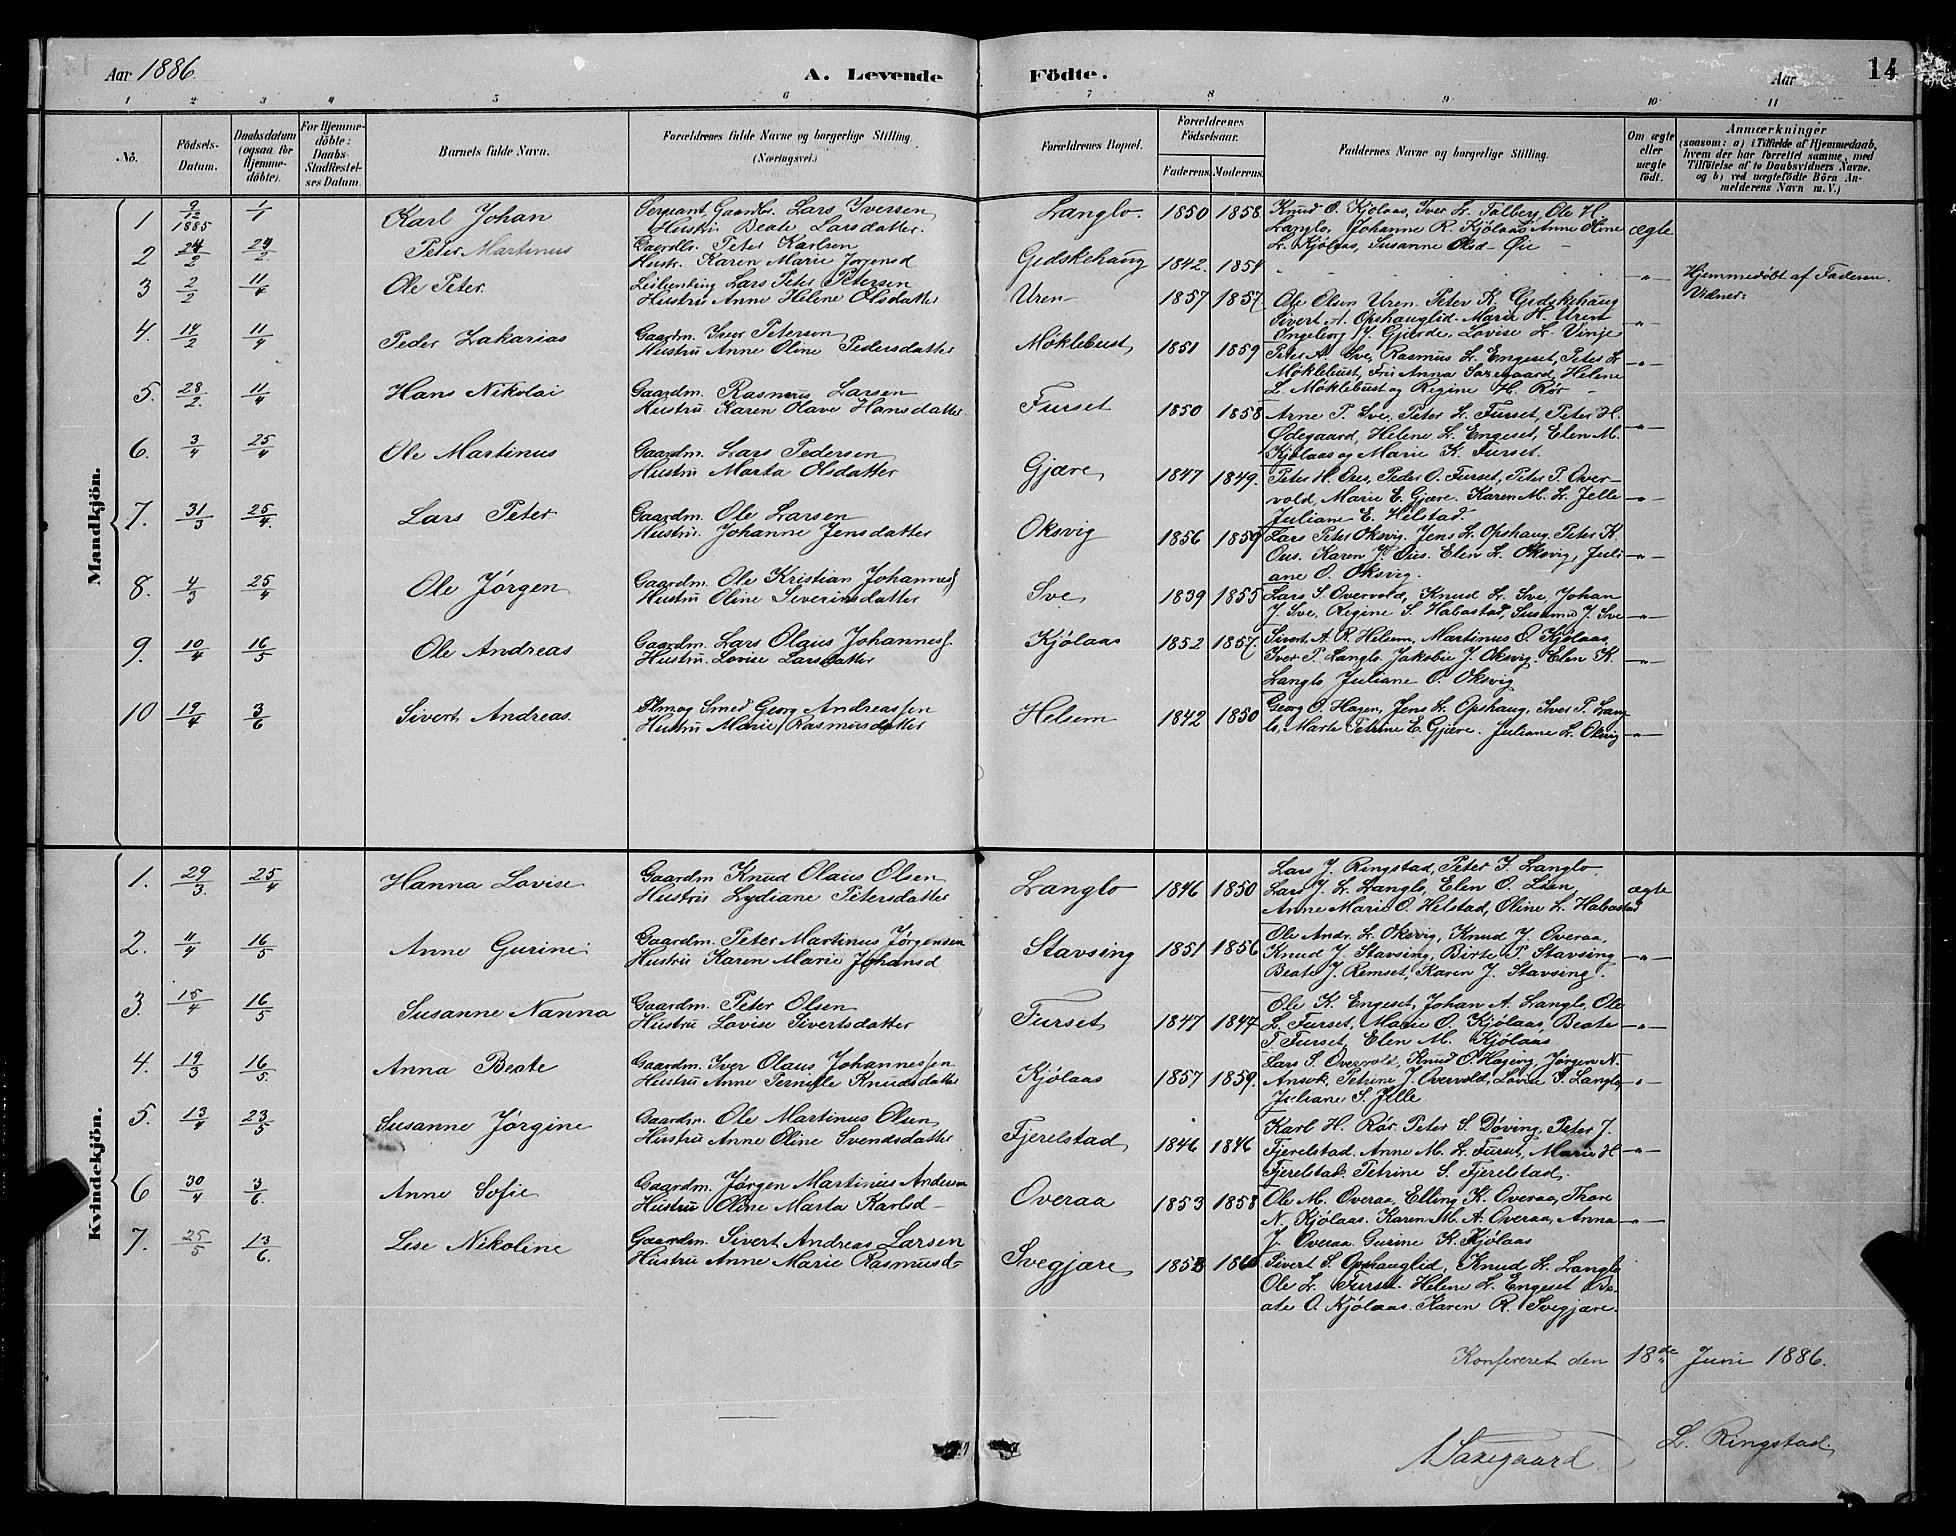 Aar 1886.
A. Levende Födte.
Aar
14
1 2 3 4 5 6 7 8 9 10 11
No.
Födsels-Datum.
Daabsdatum (ogsaa for Hjemme-döbte).
For Hjemme-döbte: Daabs-Stadfæstel-ses Datum.
Barnets fulde Navn.
Forældrenes fulde Navne og borgerlige Stilling. (Næringsvei.)
Forældrenes Bopæl.
Forældrenes Födselsaar.
Faderens. Moderens.
Faddernes Navne og borgerlige Stilling.
Om ægte eller uægte födt.
Anmærkninger
(saasom: a) i Tilfælde af Hjemmedaab,
hvem der har forrettet samme, med
Tilföielse af to Daabsvidners Navne,
og b) ved uægtefödte Börn An-
melderens Navn m. V.)
Mandkjön.
1 9/12 1885 1/1 Karl Johan
Sergeant, Gaardbr. Lars Iversen
Hustru Beate Larsdatter.
Langlo. 1850 1858
Knud O. Kjölaas, Iver L. Tålberg, Ole H.
Langlo, Johanne R. Kjölaas Anne Oline
L. Kjölaas, Susanne Olsd. Øie
ægte
2 24/2 24/2 Peter Martinus
Gaardbr. Peter Karlsen
Hustr. Karen Marie Jørgensd
Gidskehaug 1842. 1854 - -"-
Hjemmedöbt af Faderen.
Vidner:
3 2/2 11/4 Ole Peter
Leilending Lars Peter Petersen
Hustru Anne Helene Olsdatter
Uren 1857 1857
Ole Olsen Uren. Peter K. Gidskehaug
Sivert A. Opshauglid. Marie H. Uren
Ingeborg J. Gjerde, Lovise L. Vinje
-"-
4. 14/2 11/4 Peder Zakarias
Gaardm. Iver Petersen
Hustru Anne Oline Pedersdatter
Möklebust 1851 1859
Peter A. Sve, Rasmus L. Engeset, Peter L.
Möklebust, Fru Anna Saxegaard, Helene
L. Möklebust og Regine H. Rör
-"-
5. 28/2. 11/4 Hans Nikolai
Gaardm. Rasmus Larsen
Hustru Karen Olave Hansdatter
Furset 1850 1858
Arne P. Sve, Peter L. Furset, Peter H.
Ødegaard, Helene L. Engeset, Elen M.
Kjölaas og Marie K. Furset.
-"-
6. 3/4 25/4 Ole Martinus
Gaardm. Lars Pedersen
Hustru Marta Olsdatter
Gjære 1847 1849.
Peter H. Ous, Peder O. Furset, Peter P. Over-
vold, Marie E. Gjære. Karen M. L. Jelle
Juliane E. Helstad.
-"-
7. 31/3 25/4. Lars Peter
Gaardm. Ole Larsen
Hustru. Johanne Jensdatter
Oksvig 1856 1859
Lars Peter Oksvig. Jens L. Opshaug. Peter K.
Ous. Karen P. Ous. Elen L. Oksvig, Juli
ane O. Oksvig.
-"-
8. 4/3 25/4 Ole Jörgen
Gaardm. Ole Kristian Johannes
Hustru Oline Severinsdatter
Sve 1839 1855
Lars S. Overvold, Knud L. Sve, Johan
J. Sve, Regine S. Habostad, Susanne J. Sve
-"-
9. 10/4 16/5 Ole Andreas
Gaardm. Lars Olaus Johannes
Hustru. Lovise Larsdatter
Kjölaas 1852 1857.
Sivert A. R. Helsem, Martinus O. Kjölaas,
Iver P. Langlo. Jakobie J. Oksvig. Elen K.
Langlo Juliane O. Oksvig
-"-
10 19/4 3/6 Sivert Andreas
Plm og Smed Georg Andreassen
Hustru Marie Rasmusdatter
Helsem 1842 1850
Georg O. Hagen, Jens L. Opshaug, Iver P. Lang
lo, Marte Petrine E. Gjære. Juliane L. Oksvig
-"-
Kvindekjön.
1. 29/3. 25/4 Hanna Lovise
Gaardm Knud Olaus Olsen
Hustru Lydiane Petersdatter
Langlo 1846 1850
Lars J. Ringstad, Peter I. Langlo
Lars J. L. Langlo, Elen O. Lien
Anne Marie O. Helstad, Oline L. Habostad
ægte
2. 11/4 16/5 Anne Gurine
Gaardm. Peter Martinus Jørgensen
Hustru Karen Marie Johansd
Stavsing 1851 1856
Ole Andr. L. Oksvig, Knud J. Overaa,
Knud J. Stavsing, Birte P. Stavsing
Beate J. Remset, Karen J. Stavsing.
-"-
3. 15/4 16/5 Susanne Nanna
Gaardm. Peter Olsen
Hustru Lovise Sivertsdatter
Furset 1847 1847
Ole K. Engeset, Johan A. Langlo, Ole
L. Furset, Marie O. Kjölaas, Beate
T. Furset, Elen M. Kjölaas
-"-
4. 19/3 16/5. Anna Beate
Gaardm. Iver Olaus Johannessen
Hustru Anne Pernille Knudsdatter
Kjölaas 1857 1859.
Lars S. Overvold, Knud O. Hagen, Jörgen N.
Ansok, Petrine J. Overvold, Lovise P. Langlo
Juliane S. Jelle.
-"-
5. 13/4 23/5 Susanne Jörgine
Gaardm. Ole Martinus Olsen
Hustru Anne Oline Svendsdatter
Fjerelstad 1846 1846
Karl H. Rör. Peter S. Döving, Peter J.
Fjerelstad. Anne M. L. Furset, Marie H
Fjerelstad. Petrine S. Fjerelstad.
-"-
6 30/4 3/6. Anne Sofie
Gaardm. Jørgen Martinus Andersen
Hustru Oline Marta Karlsd
Overaa 1853 1858
Ole M. Overaa, Elling K. Overaa, Thore
N. Kjölaas. Karen M. A. Overaa, Anna
J. Overaa. Gurine K. Kjölaas
-"-
7. 25/5 13/6. Lise Nikoline
Gaardm. Sivert Andreas Larsen
Hustru Anne Marie Rasmusd
Svegjære 1853 1860
Sivert S. Opshauglid, Knud L. Langlo
Ole L. Furset. Helene L. Engeset Be-
ate O. Kjölaas. Karen R. Svegjære.
Konfereret den 18de Juni 1886.
Saxegaard. L. Ringstad.